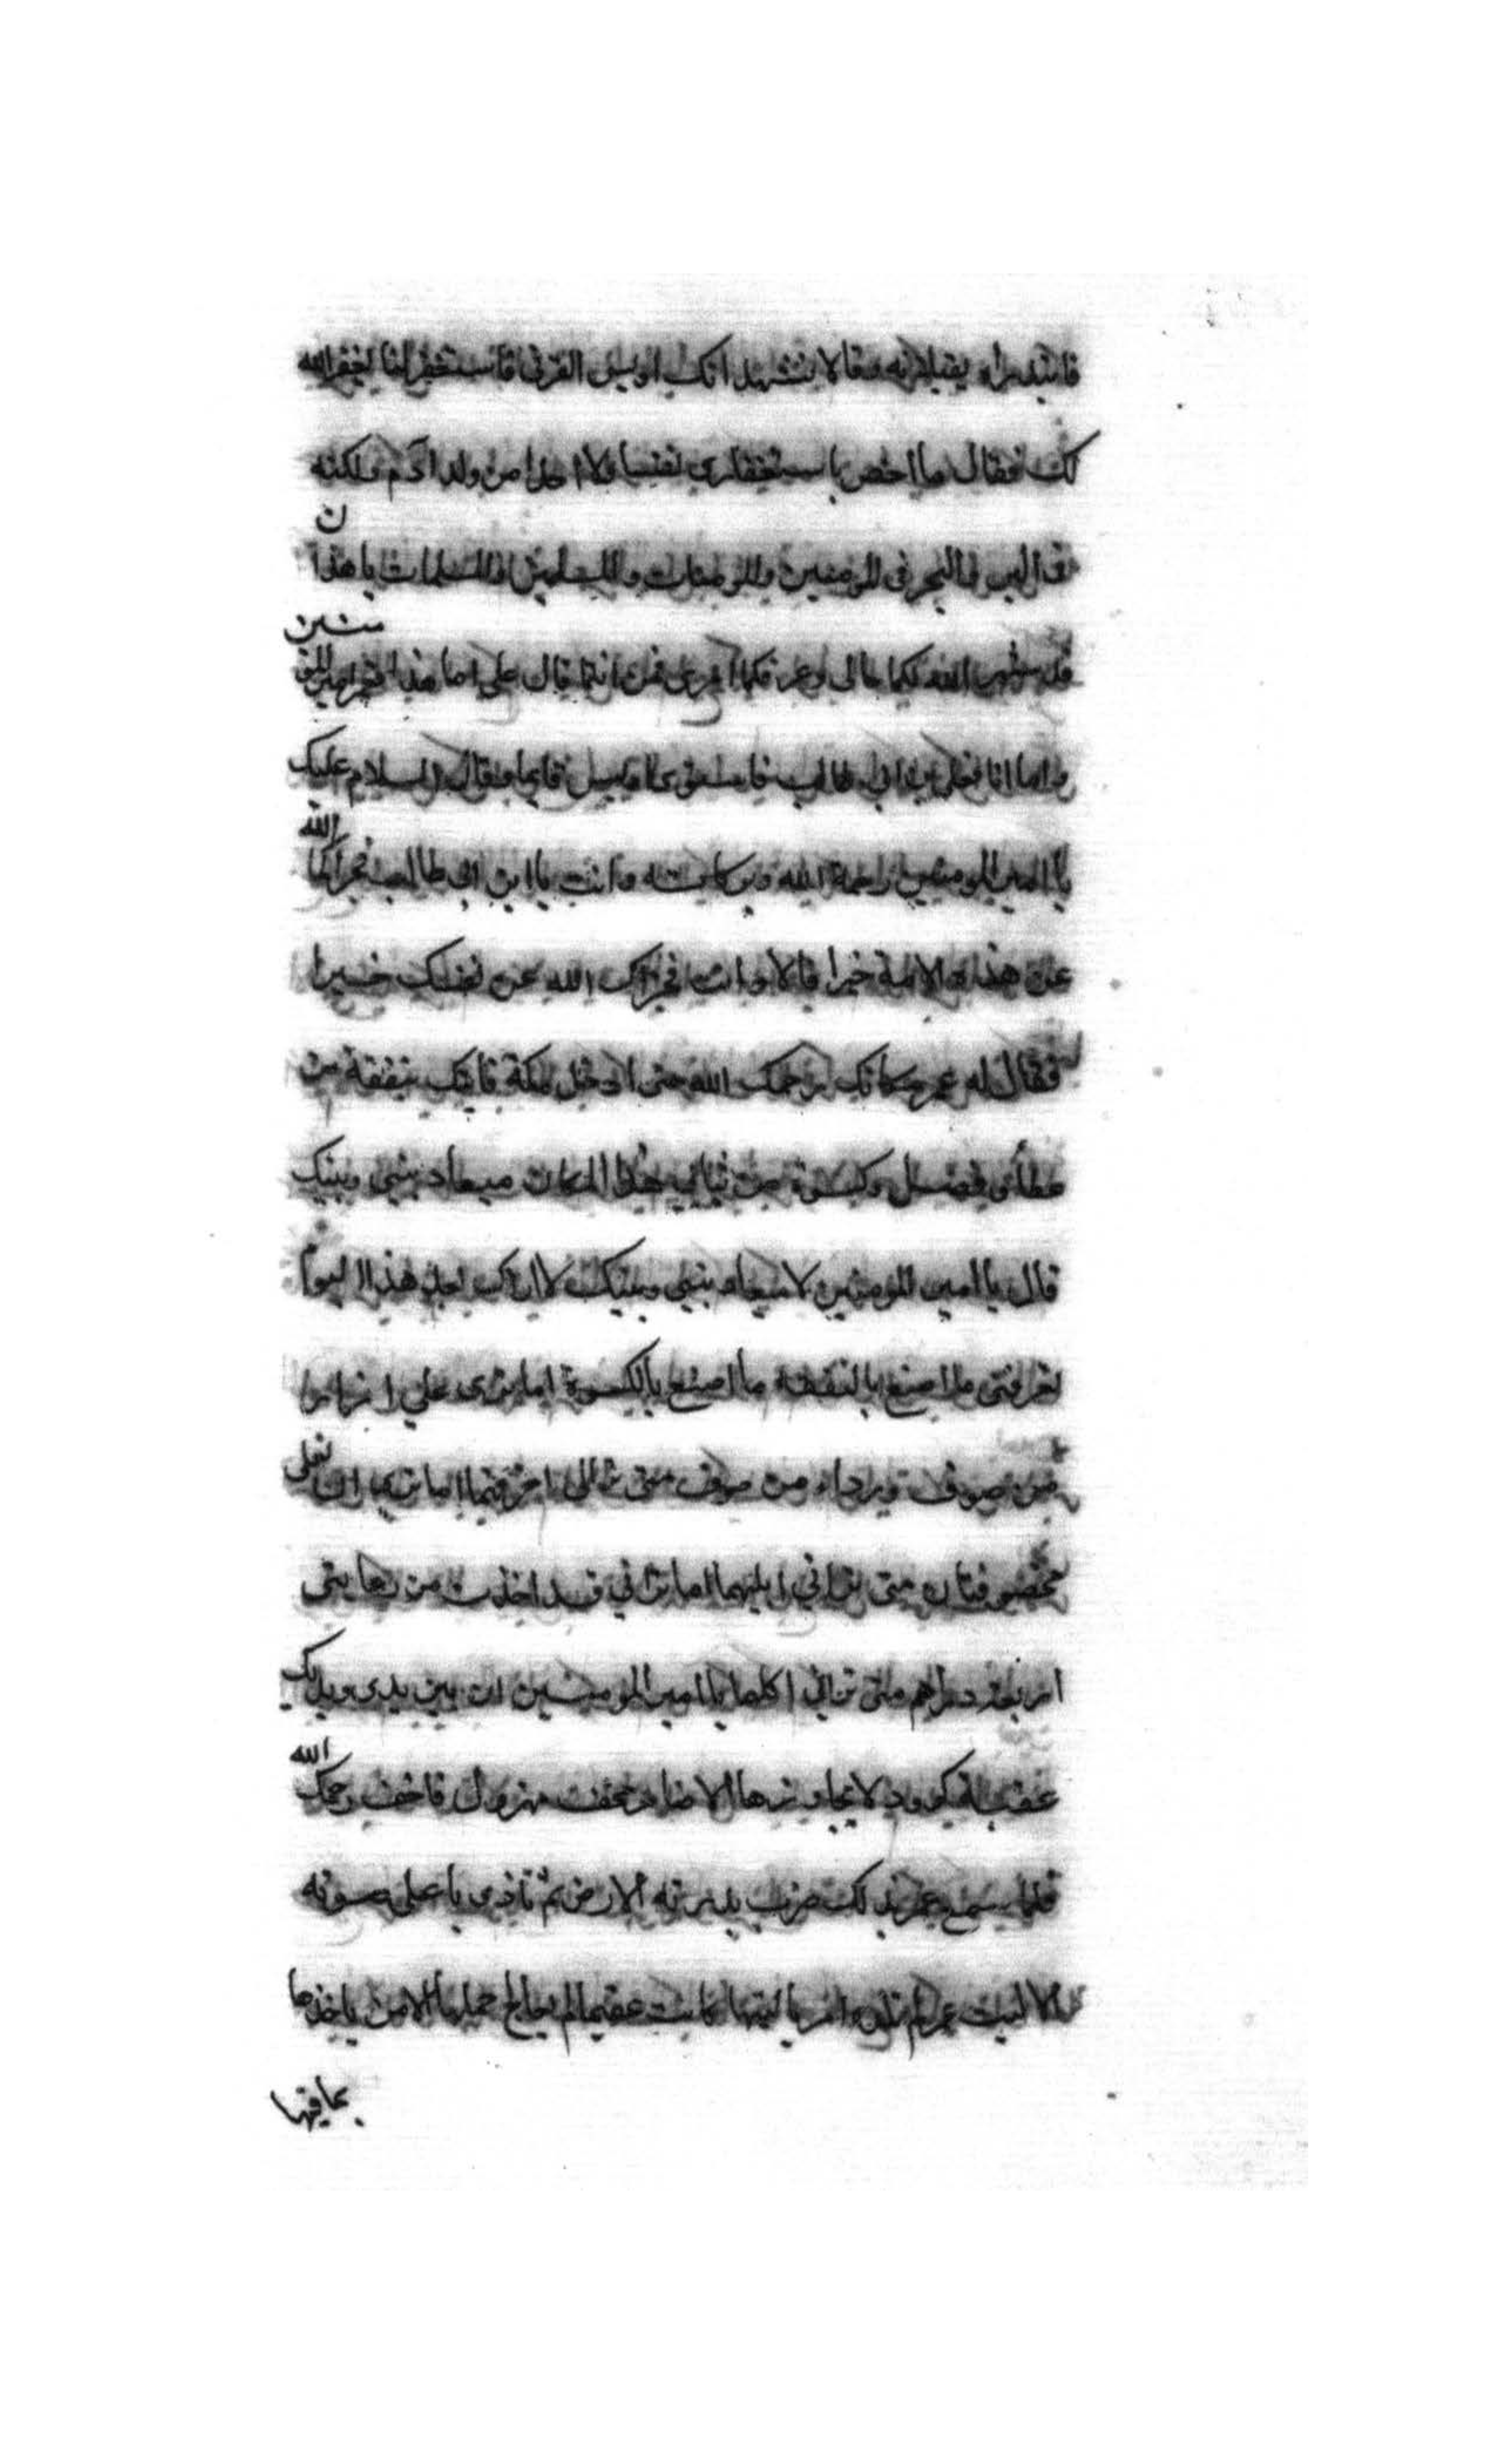 فابتدراه يقبلانه وقالا نشهد انك اويس القرنى فاستغفر لنا يغفر الله
لك فقال ما اخص باستغفارى نفسا ولا احدا من ولد ادم ولكنه
فى البر والبحر فى المومنين والمومنات والمسلمين والمسلمات يا هذان
قد شهر الله لكما حالى وعرفكما امرى فمن انتما قال على اما هذا فعمر امير المومنين
واما انا فعلى بن ابى طالب فاستوى اويس قايما وقال السلام عليك
يا امير المومنين ورحمة الله وبركاته وانت يا ابن ابى طالب فجزاكما الله
عن هذه الامة خيرا قالا وانت فجزاك الله عن نفسك خيرا
فقال له عمر مكانك يرحمك الله حتى ادخل مكة فاتيك بنفقة من
عطائى وفضل وكسوة من ثيابي هذا المكان ميعاد بينى وبينك
قال يا امير المومنين لا ميعاد بينى وبينك لا اراك بعد هذا اليوم
تعرفنى ما اصنع بالنفقة ما اصنع بالكسوة اما ترى على ازارا
من صوف ورداء من صوف متى ترانى اخرقهما اما ترى ان نعلى
مخصوفتان متى ترانى ابليهما اما ترانى قد اخذت من رعايتى
اربعة دراهم متى ترانى اكلها يا امير المومنين ان بين يدى ويديك
عقبة كوود لا يجاوزها الا ضامر مخف مهزول فاخف رحمك الله
فلما سمع عمر ذلك ضرب بدرته الارض ثم نادى باعلى صوته
الا ليت عمر لم تلده امه يا ليتها كانت عقيما لم تعالج حملها الا من ياخذها
بما فيها